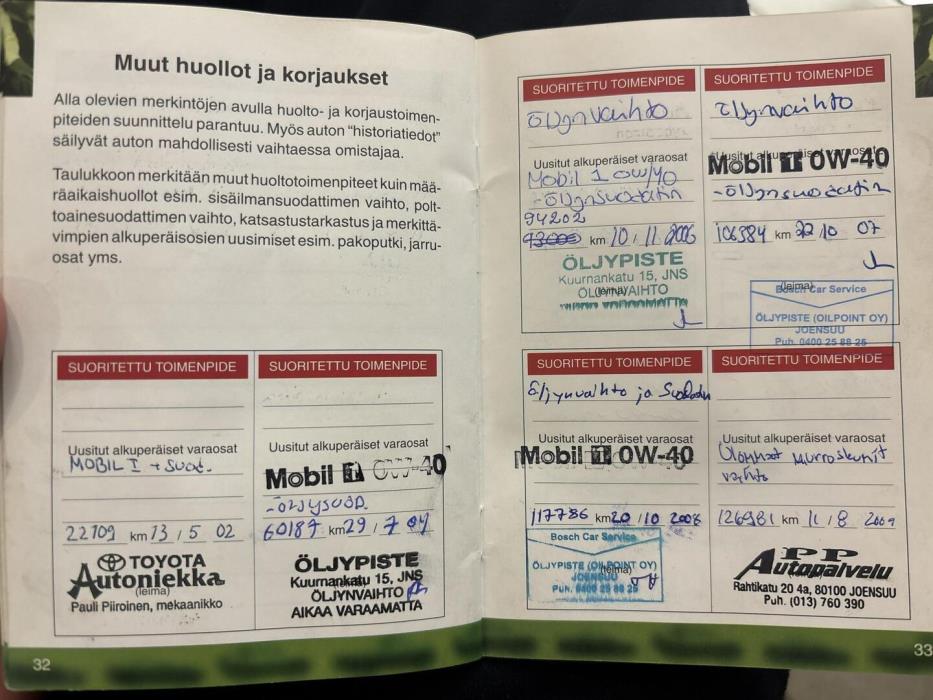 Muut huollot ja korjaukset
Alla olevien merkintöjen avulla huolto- ja korjaustoimen-
piteiden suunnittelu parantuu. Myös auton "historiatiedot"
säilyvät auton mahdollisesti vaihtaessa omistajaa.
Taulukkoon merkitään muut huoltotoimenpiteet kuin mää-
räaikaishuollot esim. sisäilmansuodattimen vaihto, polt-
toainesuodattimen vaihto, katsastustarkastus ja merkittä-
vimpien alkuperäisosien uusimiset esim. pakoputki, jarru-
osat yms.
SUORITETTU TOIMENPIDE
Uusitut alkuperäiset varaosat
MOBIL 1 + SUOD.
22709 km 13 / 5 02
TOYOTA
Autoniekka
(leima)
Pauli Piiroinen, mekaanikko
SUORITETTU TOIMENPIDE
Uusitut alkuperäiset varaosat
Mobil 1 0W-40
-ÖLJYSUOD.
60187 km 29 / 7 04
ÖLJYPISTE
Kuurnankatu 15, JNS
(leima)
ÖLJYNVAIHTO
AIKAA VARAAMATTA
32
SUORITETTU TOIMENPIDE
Öljynvaihto
Uusitut alkuperäiset varaosat
Mobil 1 0W/40
-öljynsuodatin
94202
93000 km 10 / 11 2006
ÖLJYPISTE
Kuurnankatu 15, JNS
(leima)
ÖLJYNVAIHTO
VARAAMATTA
SUORITETTU TOIMENPIDE
Öljynvaihto
Uusitut alkuperäiset varaosat
Mobil 1 0W-40
-öljynsuodatin
106384 km 22 10 07
(leima)
Bosch Car Service
ÖLJYPISTE (OILPOINT OY)
JOENSUU
Puh. 0400 25 88 25
SUORITETTU TOIMENPIDE
Öljynvaihto ja Suodatin
Uusitut alkuperäiset varaosat
Mobil 1 0W-40
117786 km 20 / 10 2008
Bosch Car Service
ÖLJYPISTE (OILPOINT OY)
(leima)
JOENSUU
Puh. 0400 25 88 25
SUORITETTU TOIMENPIDE
Uusitut alkuperäiset varaosat
Ulommat murroskumit
vaihto
126981 km 11 / 8 2009
PP
Autopalvelu
(leima)
Rahtikatu 20 4a, 80100 JOENSUU
Puh. (013) 760 390
33